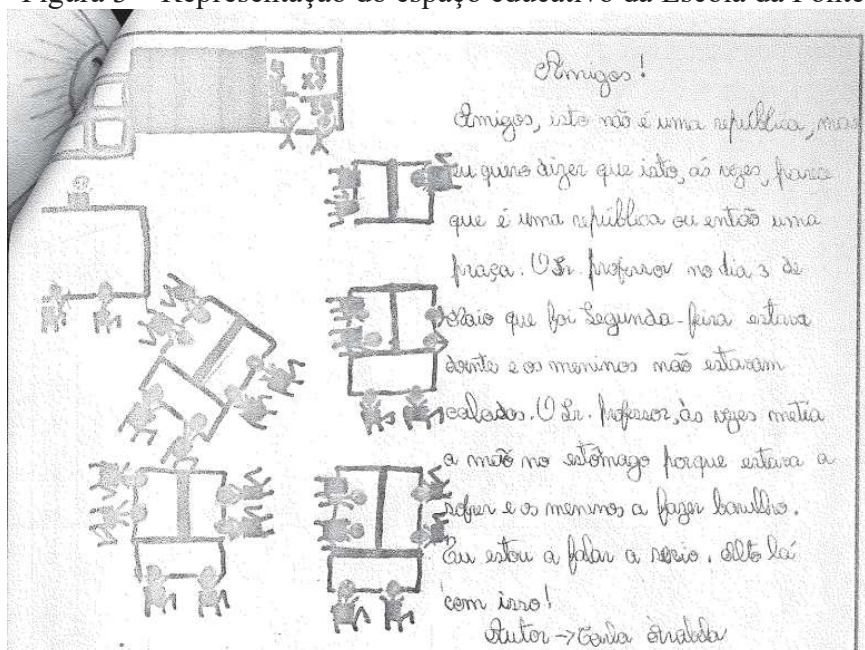 Figura 3 – Representação do espaço educativo da Escola da Ponte
Amigos!
Amigos, isto não é uma república, mas
eu quero dizer que isto, ás vezes, parece
que é uma república ou então uma
praça. O Sr. professor no dia 3 de
Maio que foi Segunda-feira estava
doente e os meninos não estavam
calados. O Sr. professor, ás vezes metia
a mão no estômago porque estava a
sofrer e os meninos a fazer barulho.
Eu estou a falar a sério. Alto lá
com isso!
Autor → Carla